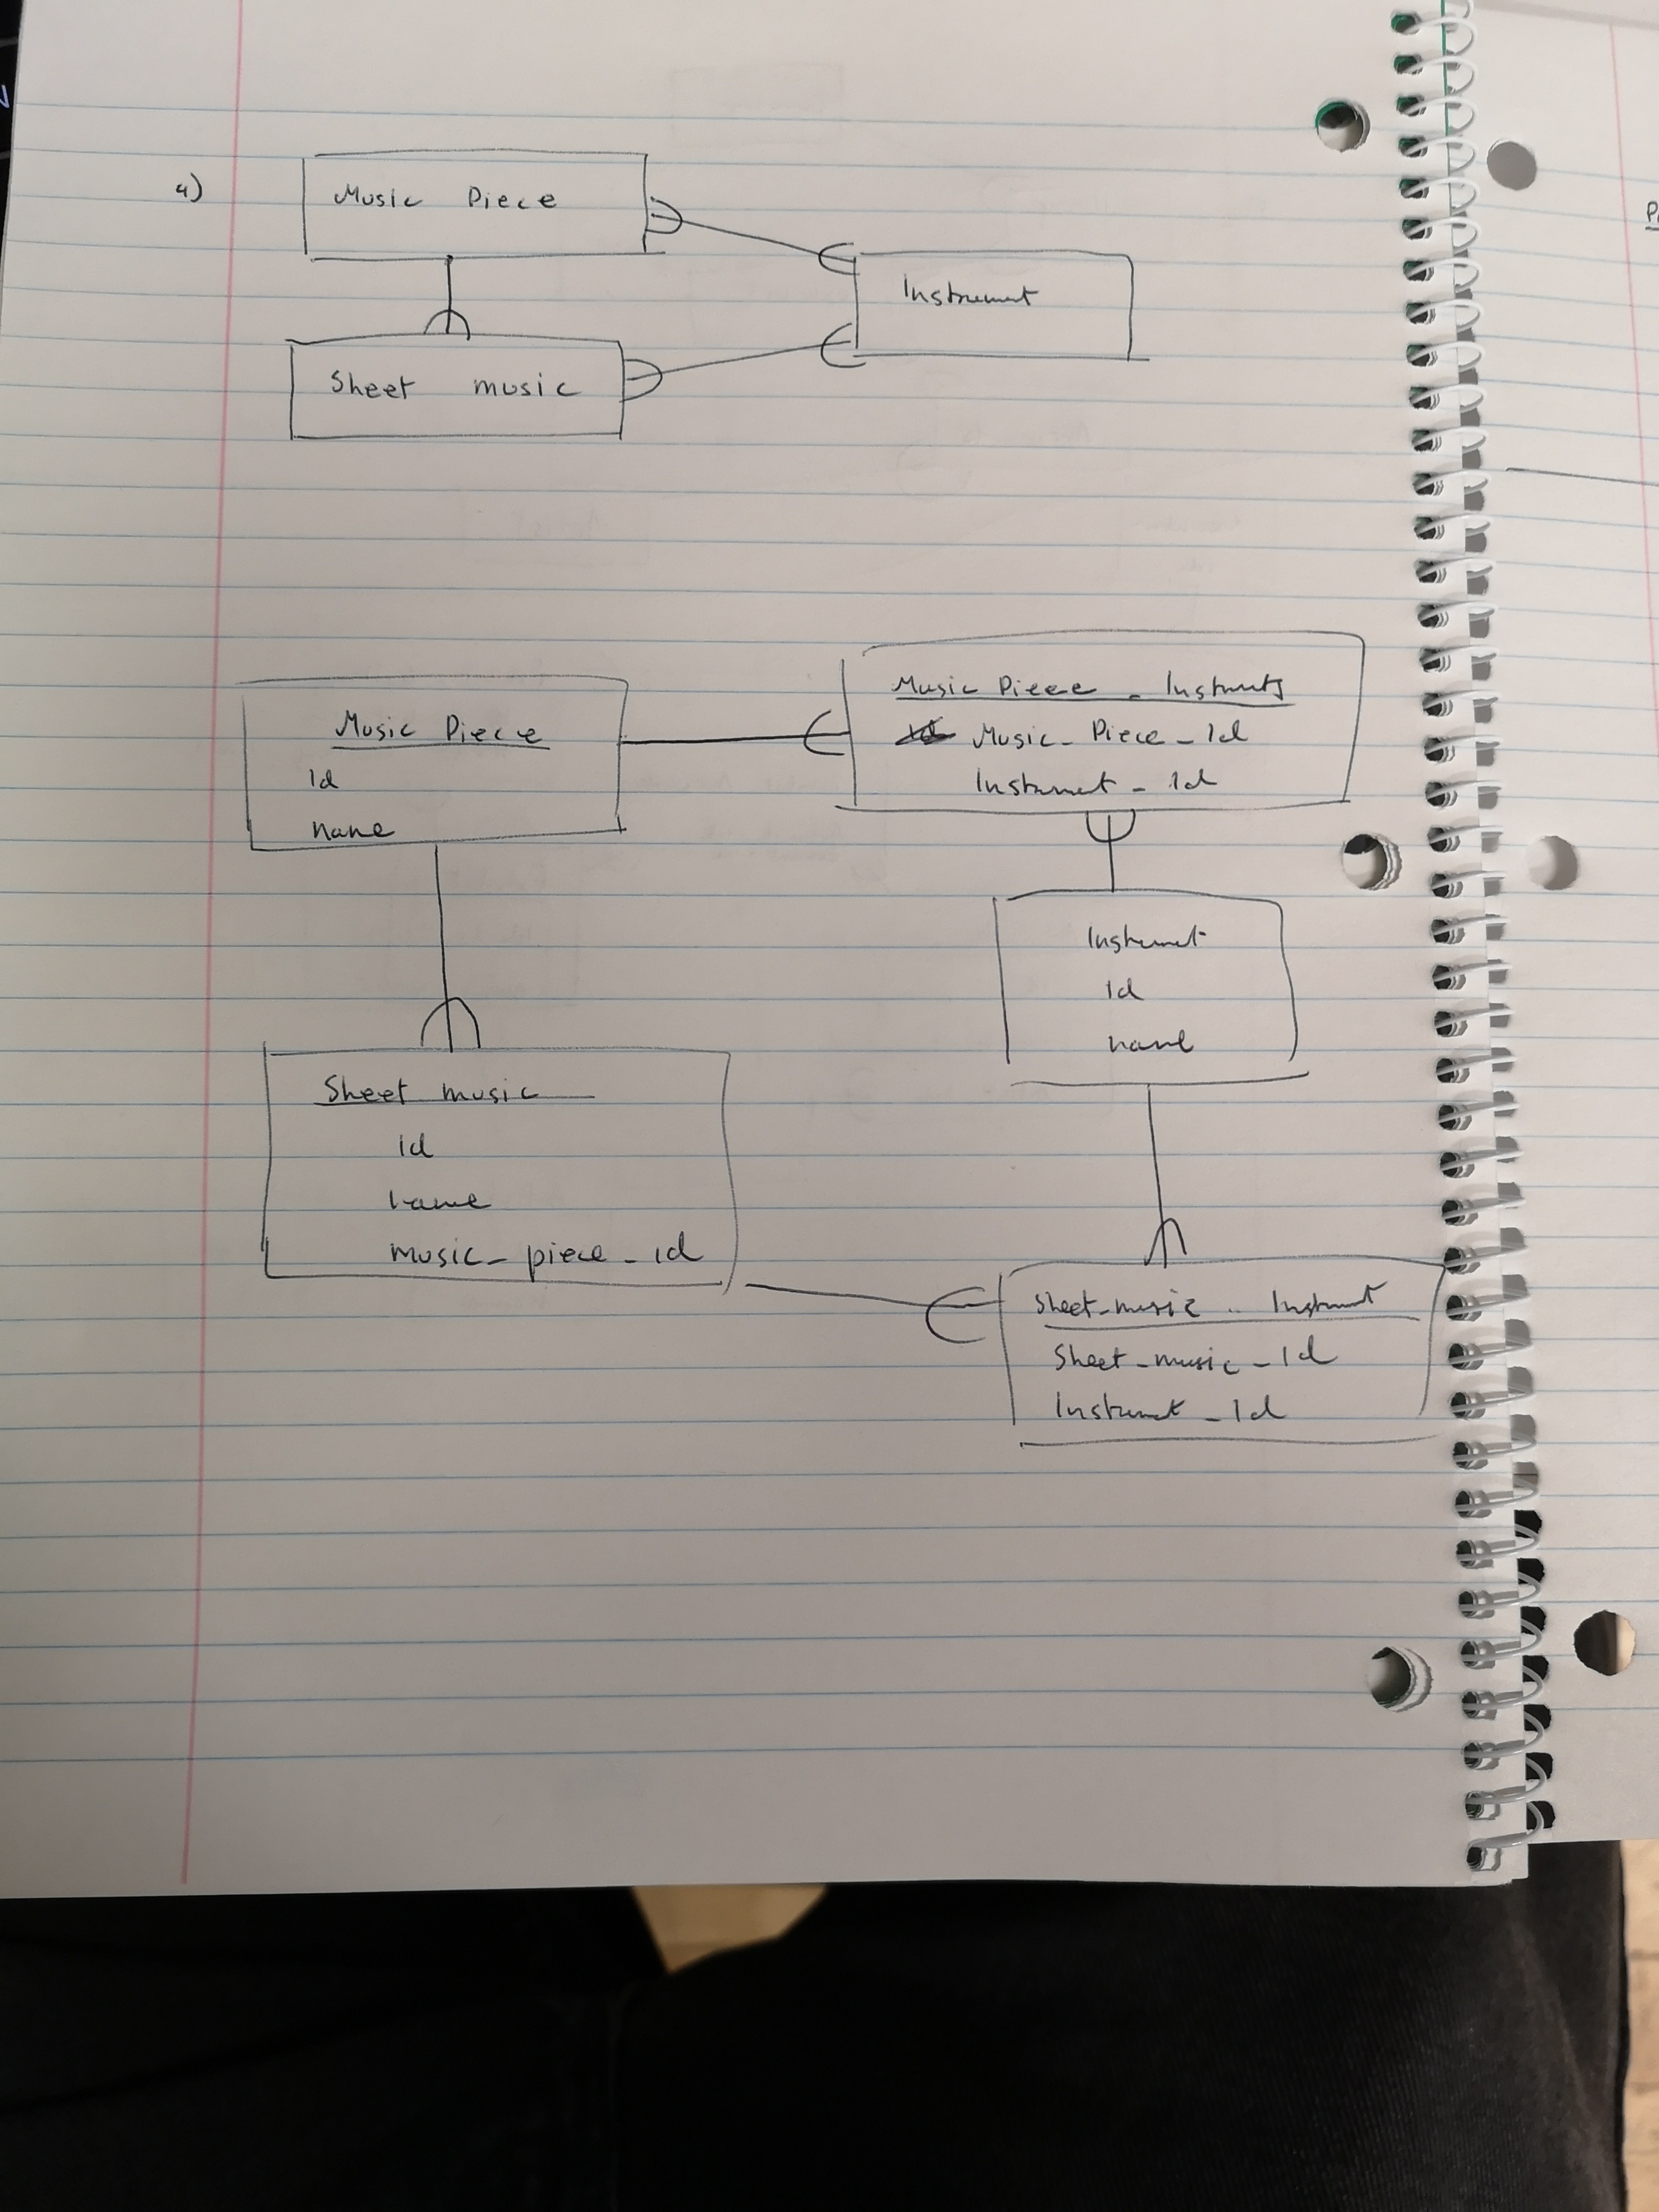 4)
Music Piece
Instrument
Sheet music
Music Piece
Id
name
Music Piece - Instruments
Music_Piece_Id
Instrument_Id
Instrument
Id
name
Sheet music
id
name
music_piece_id
Sheet_music - Instrument
Sheet_music_Id
Instrument_Id